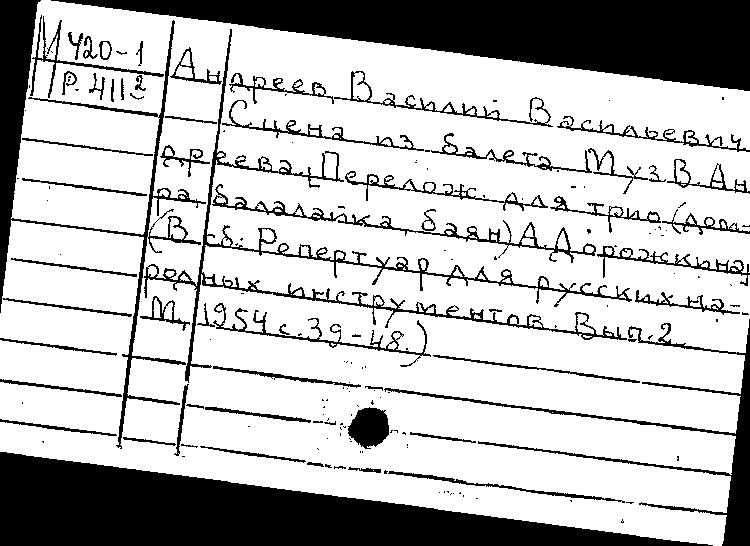 М 420-1
Р. 411²
Андреев, Василий Васильевич.
Сцена из балета. Муз. В. Ан-
дреева. [Перелож. для трио (дом-
ра, балалайка, баян) А. Дорожкина]
(В сб.: Репертуар для русских на-
родных инструментов. Вып. 2.
М., 1954 с. 39-48.)